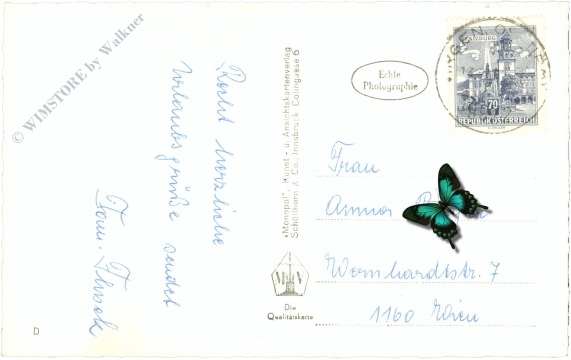 © WIMSTORE by Walkner
Recht herzliche
Urlaubsgrüße sendet
Fam.
"Monopol", Kunst- u. Ansichtskartenverlag
Schöllhorn & Co., Innsbruck, Colingasse 6
Echte
Photographie
SALZBURG
70
REPUBLIK ÖSTERREICH
Frau
Anna
Wernhardtstr. 7
1160 Wien
Die
Qualitätskarte
D